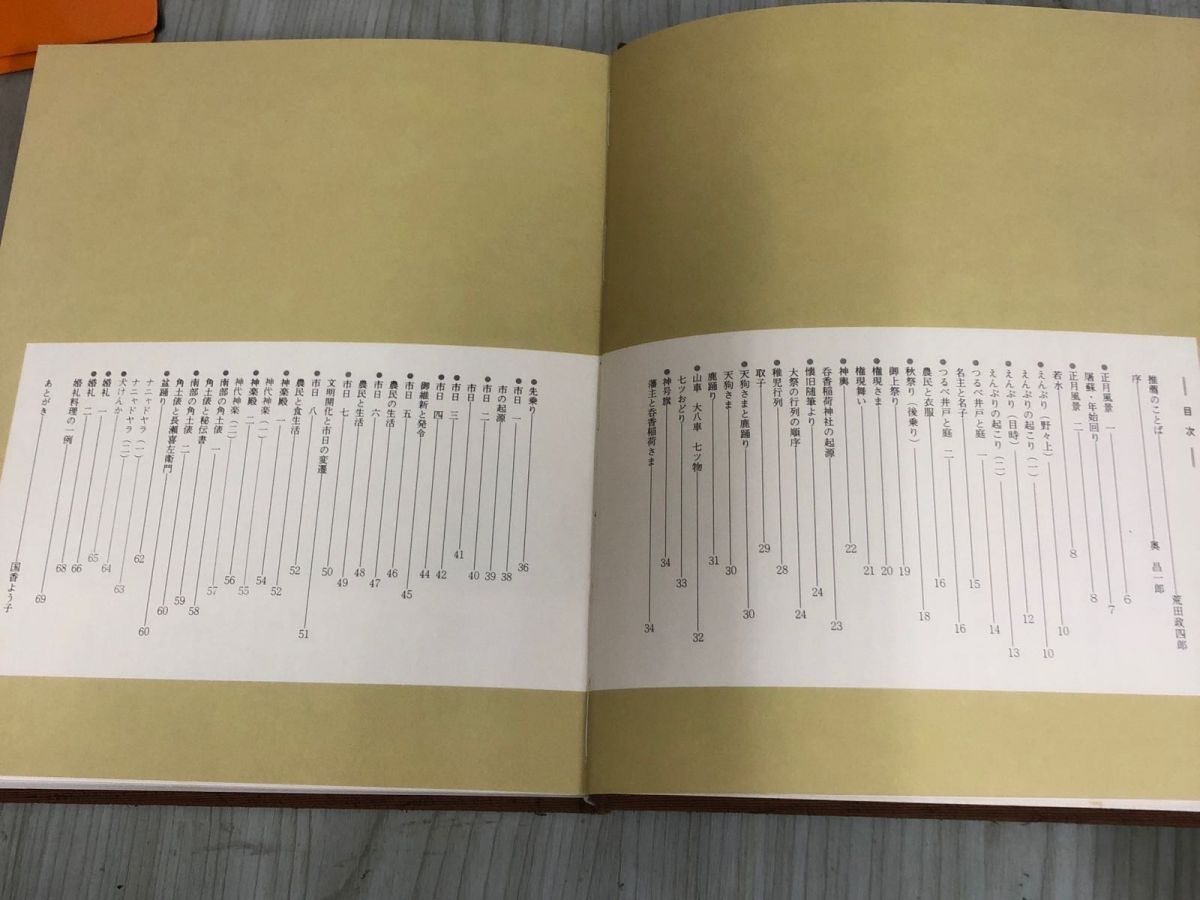 目次
推薦のことば 荒田政四郎
奥昌一郎
序 6
●正月風景 一 7
屠蘇・年始回り 8
●正月風景 二 8
若水 10
●えんぶり(野々上) 10
えんぶりの起こり(一) 12
●えんぶり(目時) 13
えんぶりの起こり(二) 14
●つるべ井戸と庭 一 15
名主と名子 16
●つるべ井戸と庭 二 16
農民と衣服 18
●秋祭り(後乗り) 19
●御上祭り 20
●権現さま 21
●権現舞い
●神輿 22
呑香稲荷神社の起源 23
●懐旧随筆より 24
大祭の行列の順序 24
●稚児行列 28
取子 29
●天狗さまと鹿踊り 30
●天狗さま 30
鹿踊り 31
●山車 大八車 七ツ物 32
七ツおどり 33
●神号旗 34
藩主と呑香稲荷さま 34
●先乗り 36
●市日 一 38
市の起源 39
●市日 二 40
●市日 三 41
●市日 四 42
御維新と発令 44
●市日 五 45
農民の生活 46
●市日 六 47
農民と生活 48
●市日 七 49
文明開化と市日の変遷 50
●市日 八 51
農民と食生活 52
●神楽殿 一 52
神代神楽(一) 54
●神楽殿 二 55
神代神楽(二) 56
●南部の角土俵 一 57
角土俵と秘伝書 58
●南部の角土俵 二 59
角土俵と長瀬喜左衛門 60
●盆踊り 60
ナニャドヤラ(一) 62
ナニャドヤラ(二) 63
●犬けんか 64
●婚礼 一 65
●婚礼 二 66
婚礼料理の一例 68
あとがき 69
国香よう子